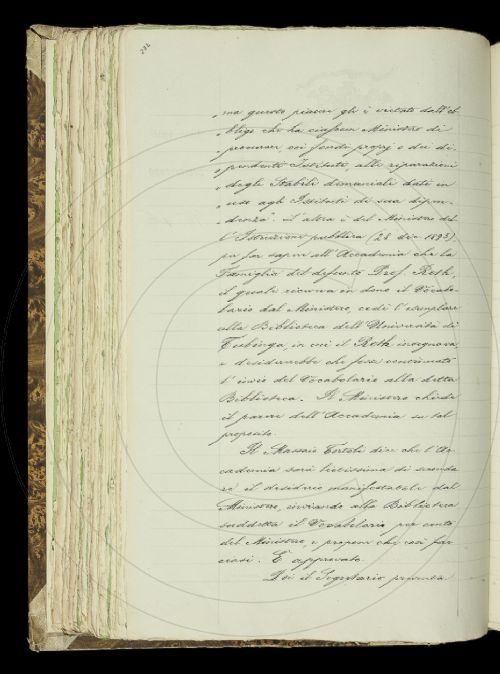 „ma questo piacere gli è vietato dall'ob
„bligo che ha ciascun Ministero di
„provvedere, coi fondi proprj e dei di-
„pendenti Istituti, alle riparazioni
„degli Stabili demaniali dati in
„uso agli Istituti di sua dipen-
„denza". L'altra è del Ministero del-
l'Istruzione pubblica (28 dic 1895)
per far sapere all'Accademia che la
Famiglia del defunto Prof. Roth,
il quale riceveva in dono il Vocabo-
lario dal Ministero, cedé l'esemplare
alla Biblioteca dell'Università di
Tubinga, in cui il Roth insegnava
e desidererebbe che fosse continuato
l'invio del Vocabolario alla detta
Biblioteca. Il Ministero chiede
il parere dell'Accademia su tal
proposito.
Il Massaio Tortoli dice che l'Ac-
cademia sarà lietissima di seconda
re il desiderio manifestatole dal
Ministero, inviando alla Biblioteca
suddetta il Vocabolario per conto
del Ministero, e propone che così fac
ciasi. È approvato.
Poi il Segretario presenta